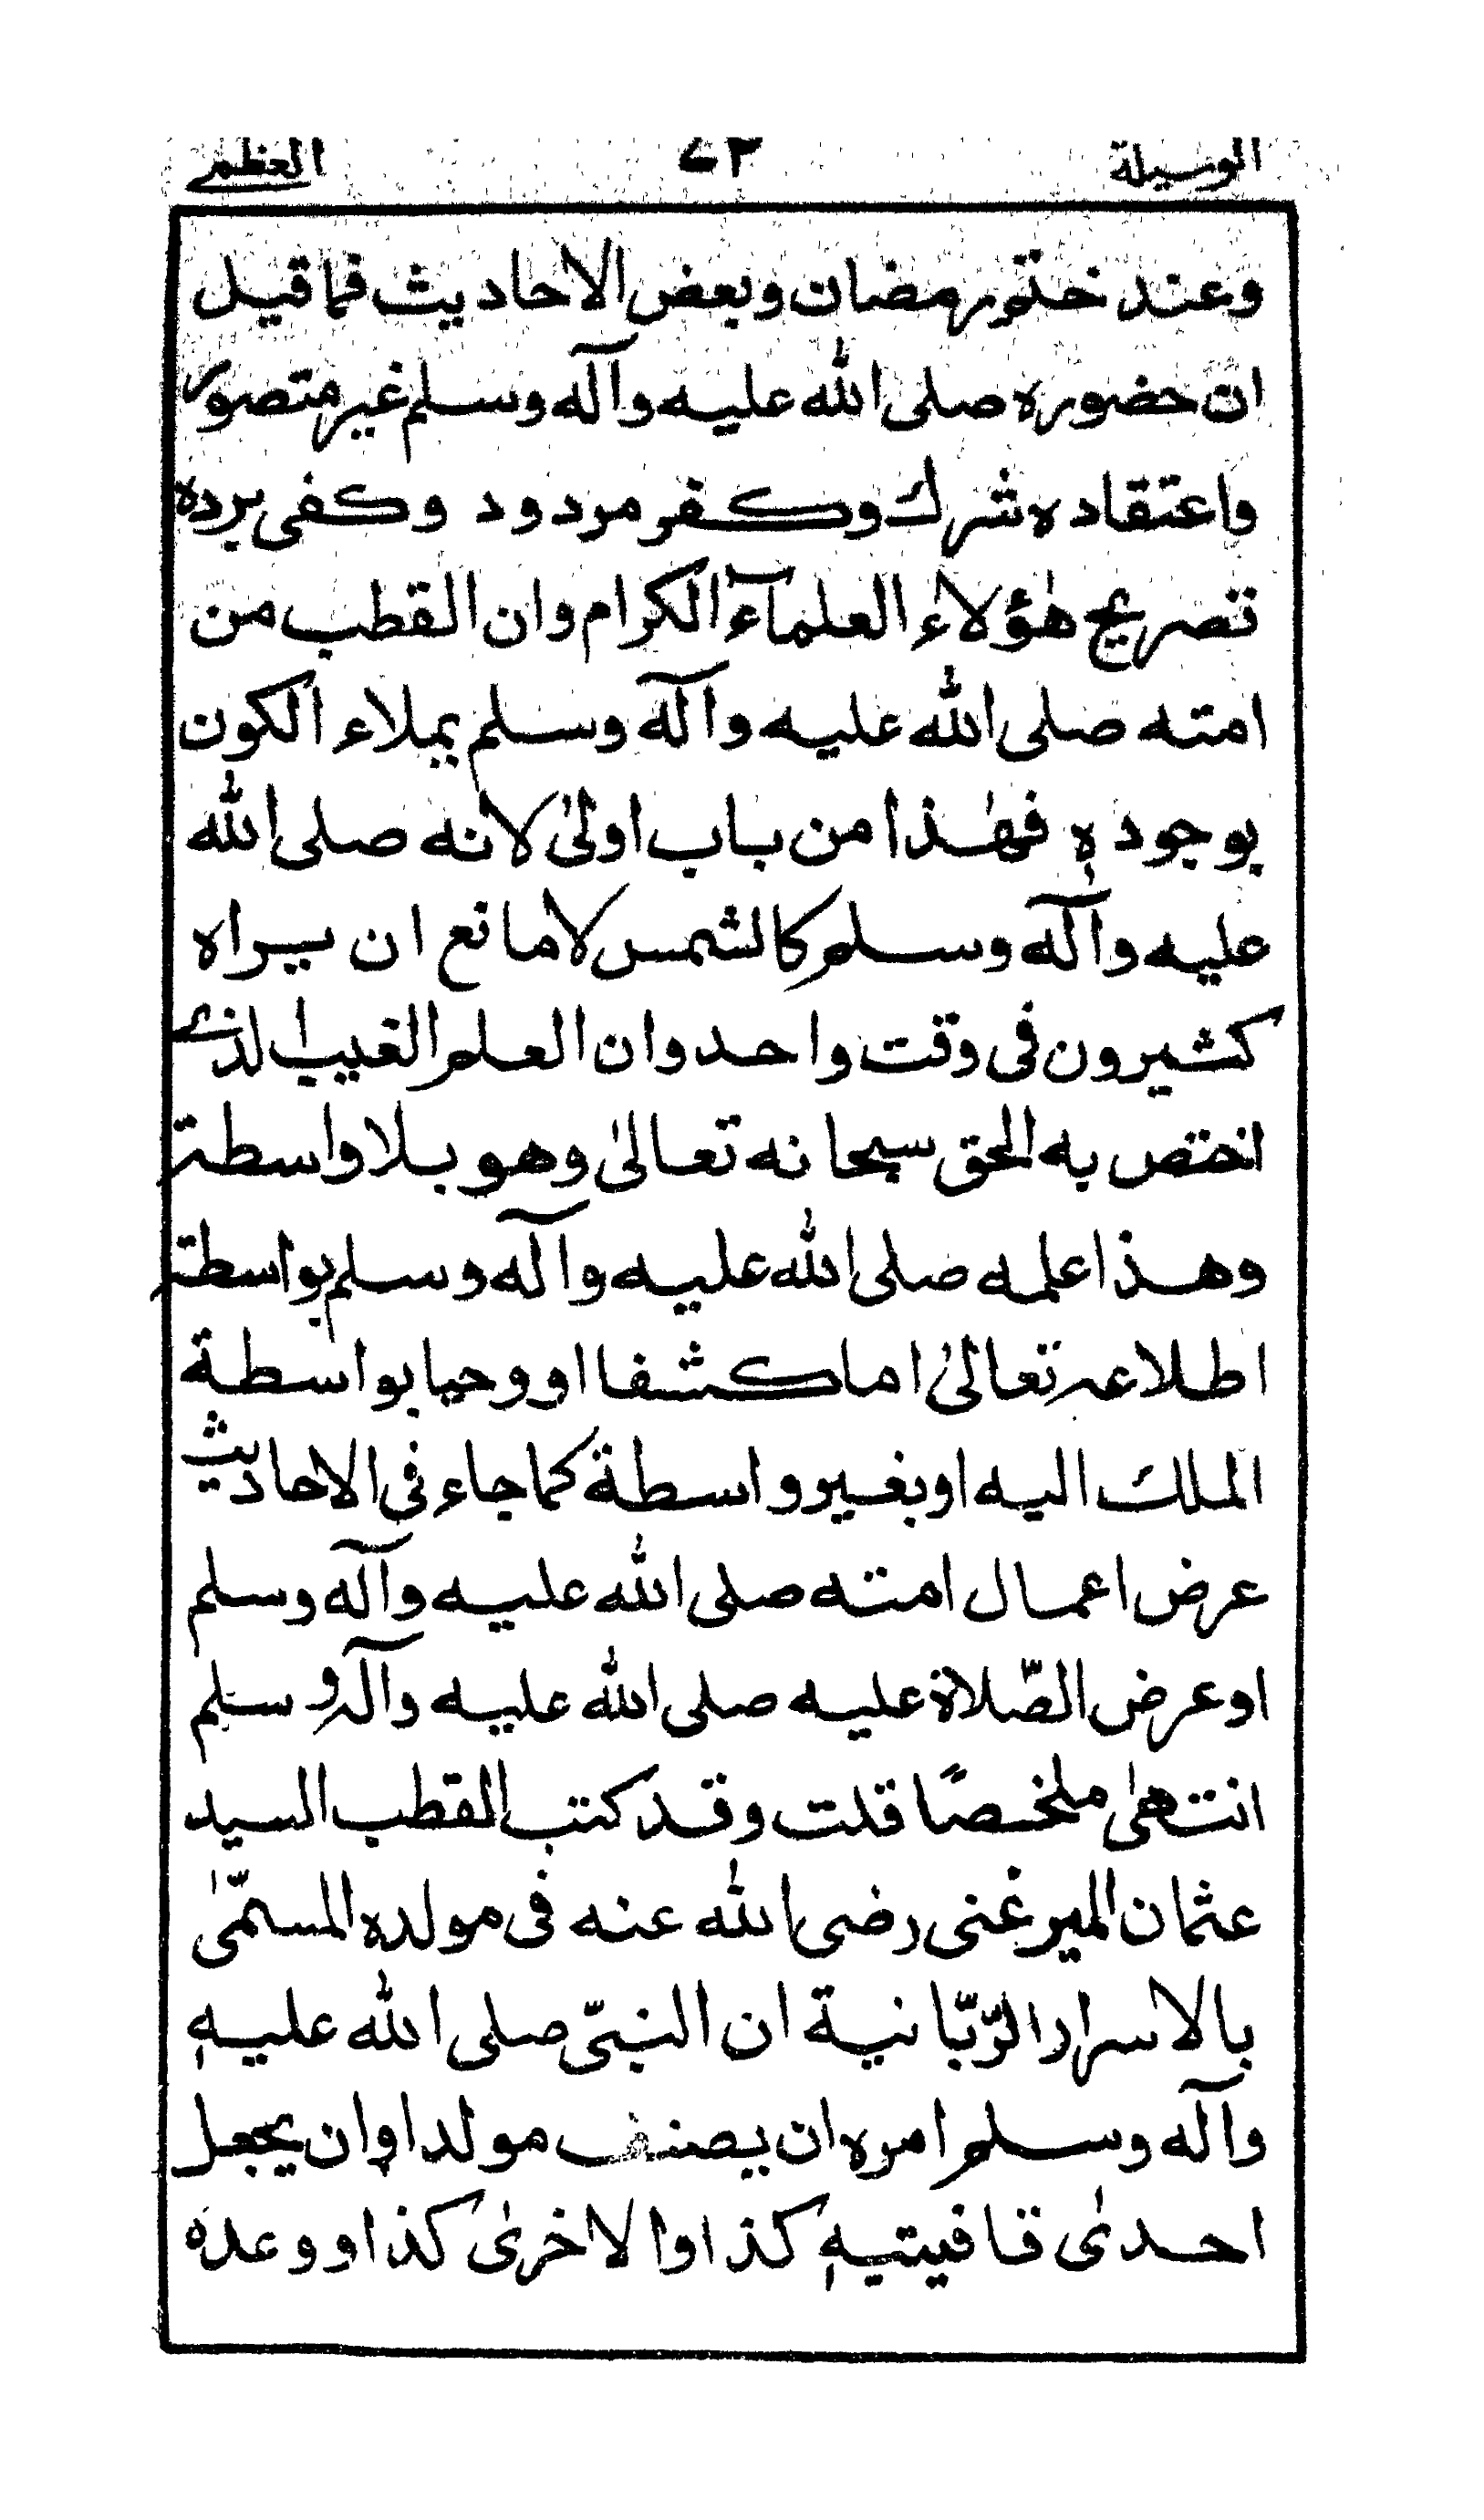 الوسيلة ٧٣ العظمى
وعند ختم رمضان وبعض الاحاديث فما قيل
ان حضوره صلى الله عليه وآله وسلم غير متصور
واعتقاده شرك وكفر مردود وكفى برده
تصريح هٰؤلاء العلمآء الكرام وان القطب من
امته صلى الله عليه وآله وسلم يملاء الكون
بوجوده فهٰذا من باب اولىٰ لانه صلى الله
عليه وآله وسلم كالشمس لا مانع ان يراه
كثيرون فى وقت واحد وان العلم الغيب الذى
اختص به الحق سبحانه تعالىٰ وهو بلا واسطة
وهذا علمه صلى الله عليه وآله وسلم بواسطة
اطلاعه تعالىٰ اما كشفا او وحيا بواسطة
الملك اليه او بغير واسطة كما جاء فى الاحاديث
عرض اعمال امته صلى الله عليه وآله وسلم
او عرض الصّلاة عليه صلى الله عليه وآله وسلم
انتهىٰ ملخصًا قلت وقد كتب القطب السيد
عثمان الميرغنى رضى الله عنه فى مولده المسمّىٰ
بالاسرار الرّبّانية ان النبىّ صلى الله عليه
وآله وسلم امره ان يصنف مولدا وان يجعل
احدىٰ قافيتيه كذا والاخرىٰ كذا ووعده